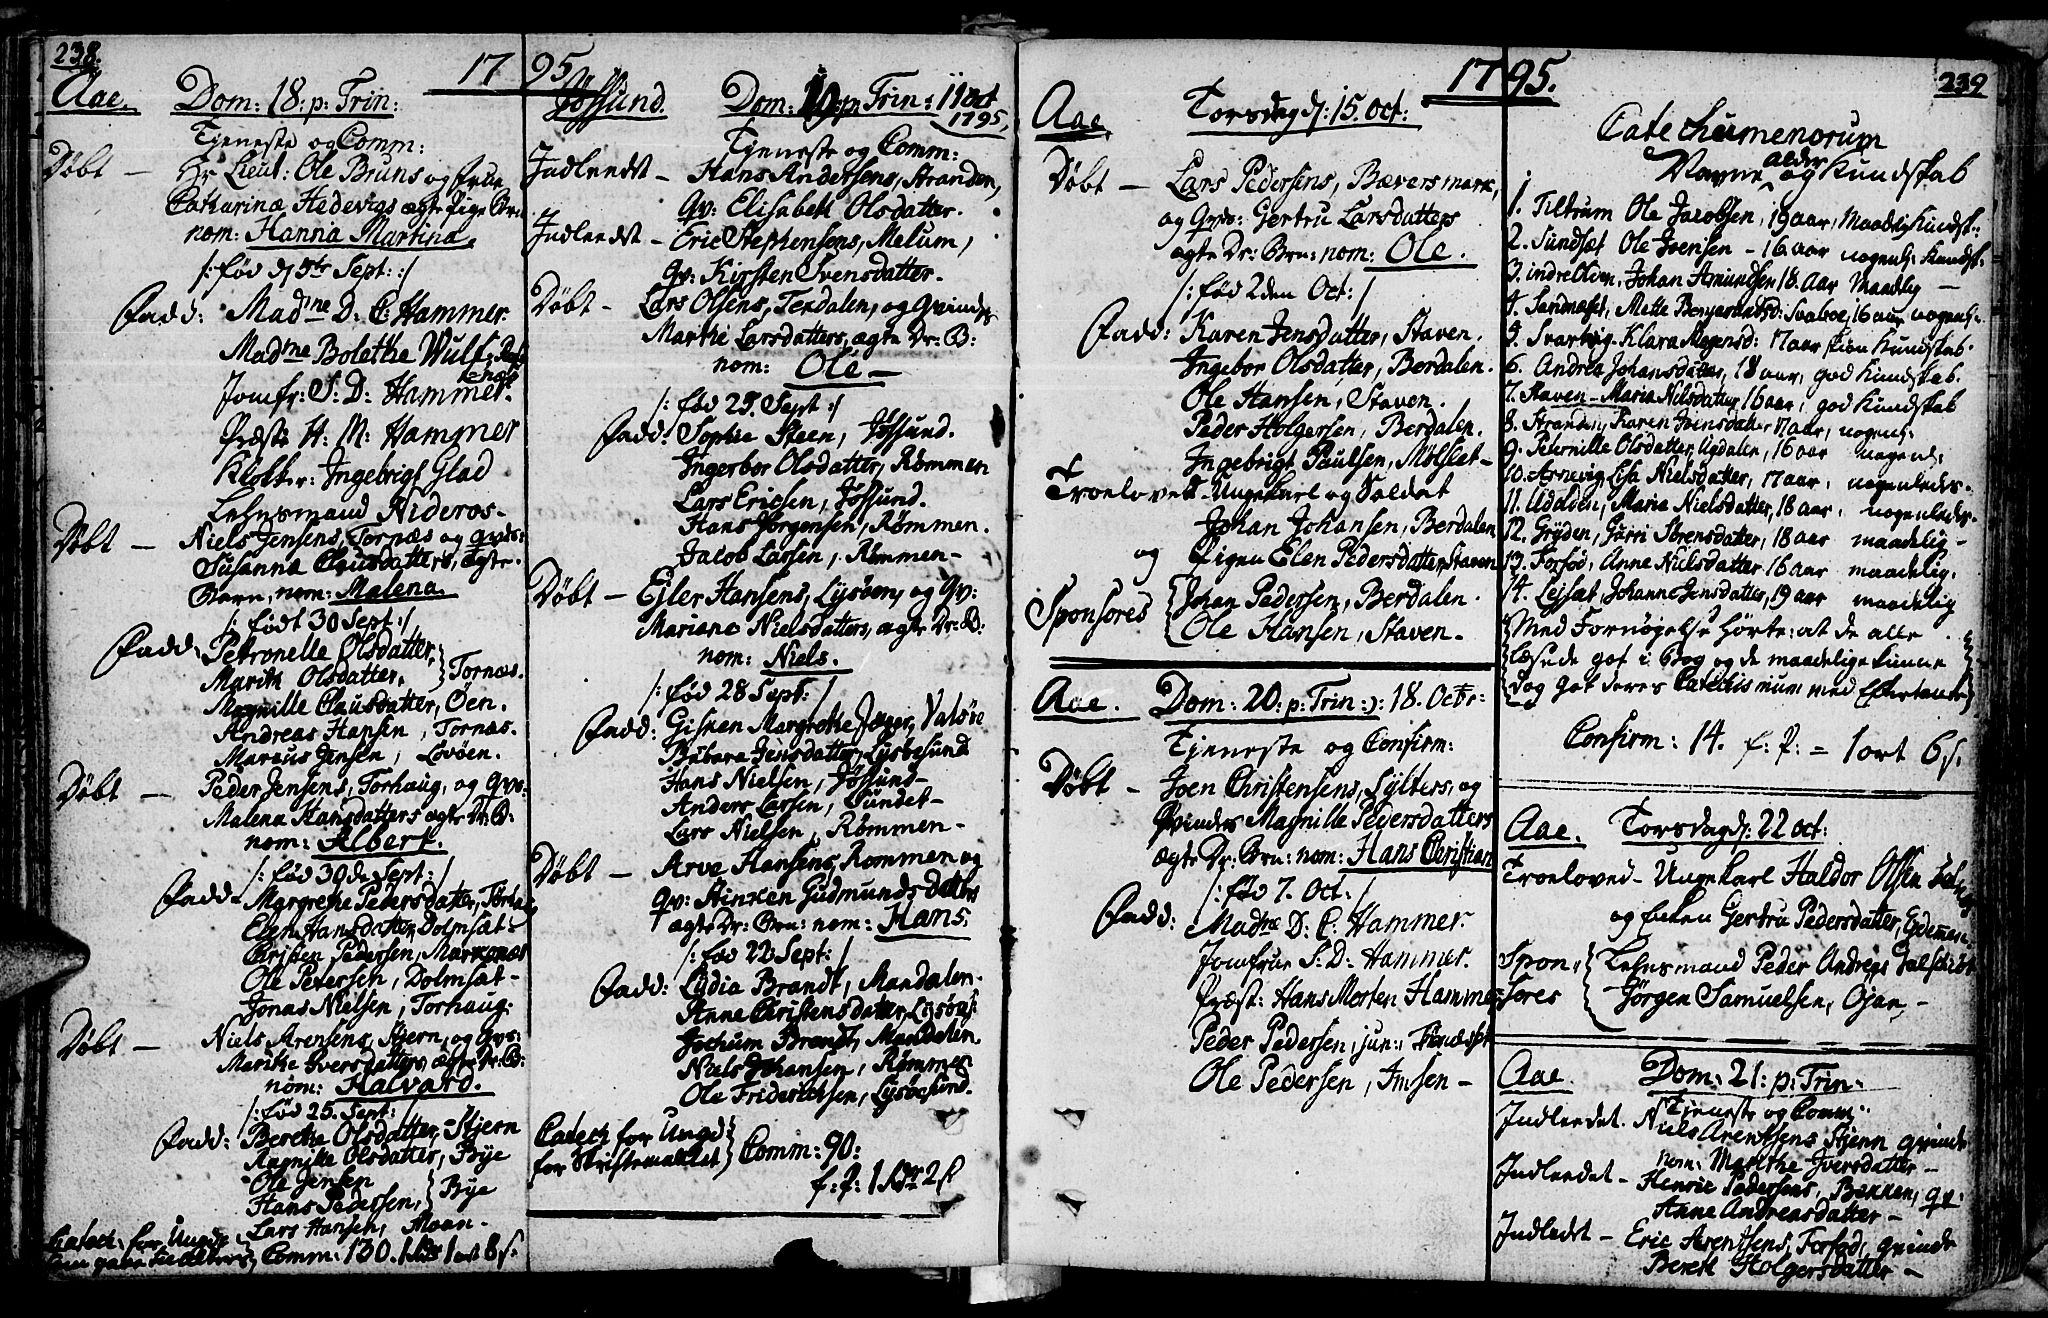 238.
1795
Aae. Dom: 18: p: Trin:
Tjeneste og Comm:
Døbt — Hr Lieut: Ole Bruns og frue
Catharina Hedevigs ægte Pige Brn
nom: Hanna Martina.
/: fød d 5te Sept: :/
Fadd: Madme D: C: Hammer.
Madme Bolethe Wulf,
Jomfr: S: D: Hammer.
Præst H: M: Hammer
Klokker: Ingebrigt Glad
Lehnsmand Nideros-
Døbt — Niels Jensens, Tornæs og qvds:
Susanna Clausdatters, ægte
Barn, nom: Malena.
/: født 30 Sept: /
Fadd: Petronelle Olsdatter,
Marith Olsdatter, } Tornæs.
Magnille Clausdatter, Öen.
Andreas Hansen, Tornæs.
Marcus Jensen, Lovöen.
Døbt — Peder Jensens, Torhaug, og qv:
Malena Hansdatters ægte Dr: B:
nom: Albert.
/: fød 30de Sept: /
Fadd- Margrethe Pedersdatter, Törhaug
Elen Hansdatter, Dolmsæt-
Christen Pedersen, Marknæs
Ole Petersen, Dolmsæt-
Jonas Nielsen, Torhaug:
Døbt — Niels Arensens, Stjern, og qvs:
Marithe Iversdatters, ægte Dr: B:
nom: Halvard.
/: fød 25. Sept: /
Fadd: Berethe Olsdatter, Stjern
Magnille Olsdatter, Bye
Ole Jensen
Hans Pedersen, } Bye
Lars Hansen, Moan-
Catech: for Unge
Comm: 130. 1 Rdr 1 ort 8 s.
Jössund. Dom: 19: p: Trin: 11 Oct
1795.
Tjeneste og Comm:
Indleedt — Hans Andersens, Stranden,
qv: Elisabeth Olsdatter.
Indleedt — Eric Stephensens, Melum,
qv: Kirsten Svensdatter-
Døbt — Lars Olsens, Terdalen, og qvindes
Marthe Larsdatters, ægte Dr: B:
nom: Ole —
/: fød 29. Sept :/
Fadd: Sophie Steen, Jössund.
Ingerbor Olsdatter, Römmen
Lars Ericsen, Jössund.
Hans Jörgensen, Römmen.
Jacob Larsen, Römmen-
Döbt — Ejler Hansens, Lysöen, og qv:
Mariane Nielsdatters, ægte Dr: B:
nom: Niels.
/: fød 28 Sept: /
Fadd: Gisken Margrethe Jæger, Valsöe
Barbara Jensdatter, Lysöesund
Hans Nielsen, Jössund-
Anders Larsen, Sundet-
Lars Nielsen, Römmen-
Döbt — Arve Hansens, Rommen og
qv: Stinken Gudmundsdatters
ægte Dr: Brn: nom: Hans.
/: fød 22 Sept: /
Fadd: Lydia Brandt, Mandalen.
Anne Christensdatter, Lysöes:
Jochum Brandt, Mandalen
Niels Johansen, Römmen
Ole Friderichsen, Lysöesund.
Catech for Ungd } Comm: 90:
for Skriftemaalet
f: P: 1 Rdr 2 s
1795.
239
Aae. Torsdag d: 15. Oct:
Døbt — Lars Pedersens, Bæversmark,
og qvds: Gertru Larsdatters
ægte Dr: Brn: nom: Ole.
/: fød 2den Oct: /
Fadd: Karen Jensdatter, Staven.
Ingebor Olsdatter, Berdalen.
Ole Hansen, Staven.
Peder Holgersen, Berdalen.
Ingebrigt Paulsen, Mölslet-
Troelovede- Ungekarl og Soldat
Johan Johansen, Berdalen
og Pigen Elen Pedersdatter, Staven
Sponsores { Johan Pedersen, Berdalen.
Ole Hansen, Staven-
Aae. Dom: 20: p: Trin: 18. Octr:
Tjeneste og Confirm:
Døbt — Joen Christensens, Sylters, og
Qvindes Magnille Pedersdatters
ægte Dr: Brn: nom: Hans Christian
/: fød 7. Oct: /
Fadd: Madme D: C: Hammer.
Jomfrue S: D: Hammer.
Præst: Hans Morten Hammer
Peder Pedersen, jun:,
Ole Pedersen, Imsen-
Catechumenorum
Navne alder og Kundskab
1. Tiltrum Ole Jacobsen, 19 aar, Maadelig Kundsk:
2. Sundsæt Ole Joensen - 16 aar nogenl: Kundsk:
3. indre Olden, Johan Amundsen 18. Aar Maadlig —
4. Sandnæset, Mette Svaboe, 16 aar nogenl:
5. Svartvig- Klara Mogensd: 17 aar skiön Kundskab.
6. Andrea Johansdatter, 18 aar, god Kundskab.
7. Staven- Maria Nielsdatter, 16 aar, god Kundskab
8. Stranden, Karen Joensdatter 17 aar, nogenl:
9. Peternille Olsdatter, Updalen, 16 aar nogenl:
10. Arnevig, Lisa Nielsdatter, 17 aar, nogenledes.
11. Udalden, Maria Nielsdatter, 18 aar, nogenledes-
12. Gryden, Görri Sörensdatter, 18 aar maadelig-
13. Forsöd, Anne Nielsdatter 16 aar maadelig.
14. Lejsæt, Johanne Jensdatter, 19 aar maadelig
Med Fornöjelse hörte: at de alle
læsede got i Bog og de maadelige kunne
dog got deres Catechismum med Eftertanke
Confirm: 14. f: P: = 1 ort 6 s.
Aae. Torsdag d: 22 oct:
Troeloved- Ungekarl Haldor Olsen
og Enken Gertru Pedersdatter,
Sponsores { Lehnsmand Peder Andreas
Jörgen Samuelsen, Ojan-
Aae. Dom: 21: p: Trin-
Tjeneste og Comm:
Indleedet. Niels Arentsens Stjern qvinde
nom: Marithe Iversdatter-
Indleedet- Henric Pedersens, Bakken, qv:
Anne Andreasdatter-
Indledet- Eric Arentsens, Forsöd, qvinde
Bereth Holgersdatter-